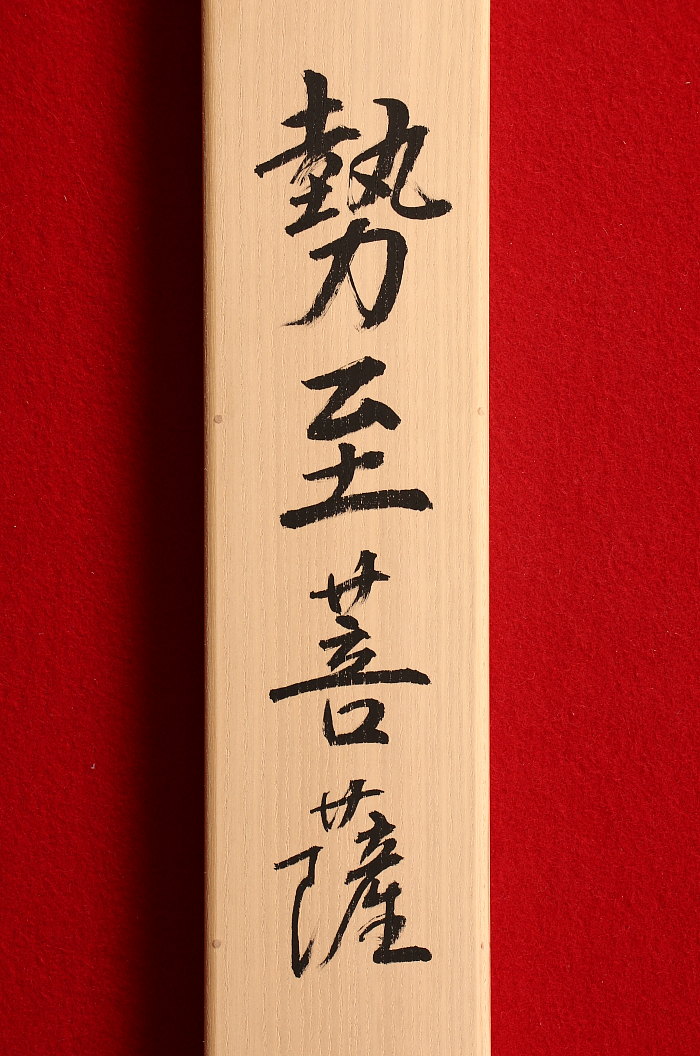 勢至菩薩